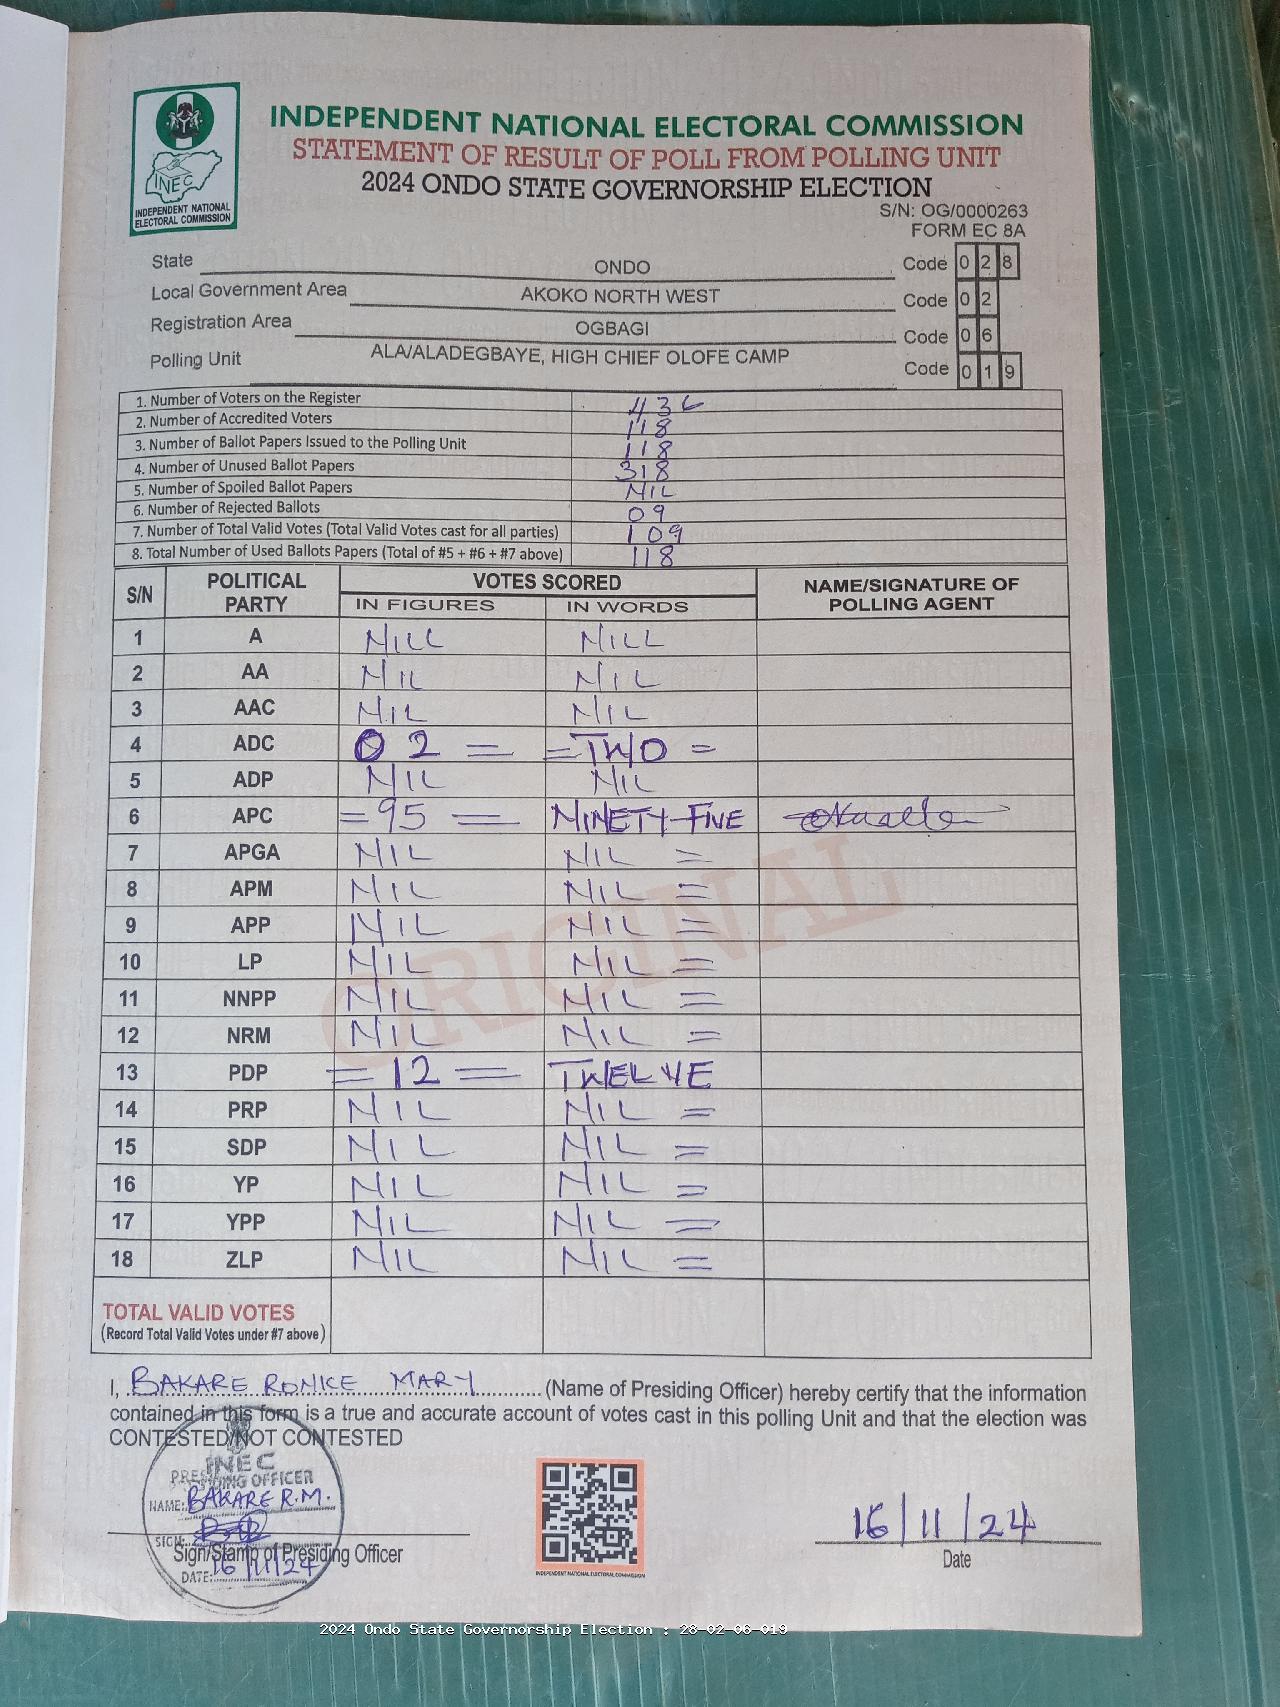 INDEPENDENT NATIONAL ELECTORAL COMMISSION
STATEMENT OF RESULT OF POLL FROM POLLING UNIT
2024 ONDO STATE GOVERNORSHIP ELECTION
INEC
INDEPENDENT NATIONAL
ELECTORAL COMMISSION
S/N: OG/0000263
FORM EC 8A
State ONDO Code 0 2 8
Local Government Area AKOKO NORTH WEST Code 0 2
Registration Area OGBAGI Code 0 6
Polling Unit ALA/ALADEGBAYE, HIGH CHIEF OLOFE CAMP Code 0 1 9
1. Number of Voters on the Register 436
2. Number of Accredited Voters 118
3. Number of Ballot Papers Issued to the Polling Unit 118
4. Number of Unused Ballot Papers 318
5. Number of Spoiled Ballot Papers NIL
6. Number of Rejected Ballots 09
7. Number of Total Valid Votes (Total Valid Votes cast for all parties) 109
8. Total Number of Used Ballots Papers (Total of #5 + #6 + #7 above) 118
S/N POLITICAL PARTY VOTES SCORED NAME/SIGNATURE OF POLLING AGENT
IN FIGURES IN WORDS
1 A NILL NILL
2 AA NIL NIL
3 AAC NIL NIL
4 ADC 02 = =TWO=
5 ADP NIL NIL
6 APC =95= NINETY-FIVE
7 APGA NIL NIL =
8 APM NIL NIL =
9 APP NIL NIL =
10 LP NIL NIL =
11 NNPP NIL NIL =
12 NRM NIL NIL =
13 PDP =12= TWELVE
14 PRP NIL NIL =
15 SDP NIL NIL =
16 YP NIL NIL =
17 YPP NIL NIL =
18 ZLP NIL NIL =
ORIGINAL
TOTAL VALID VOTES
(Record Total Valid Votes under #7 above)
I, BAKARE RONKE MARY (Name of Presiding Officer) hereby certify that the information
contained in this form is a true and accurate account of votes cast in this polling Unit and that the election was
CONTESTED/NOT CONTESTED
INEC
PRESIDING OFFICER
NAME: BAKARE R.M.
SIGN:
Sign/Stamp of Presiding Officer
DATE: 16/11/24
INDEPENDENT NATIONAL ELECTORAL COMMISSION
16/11/24
Date
2024 Ondo State Governorship Election : 28-02-06-019